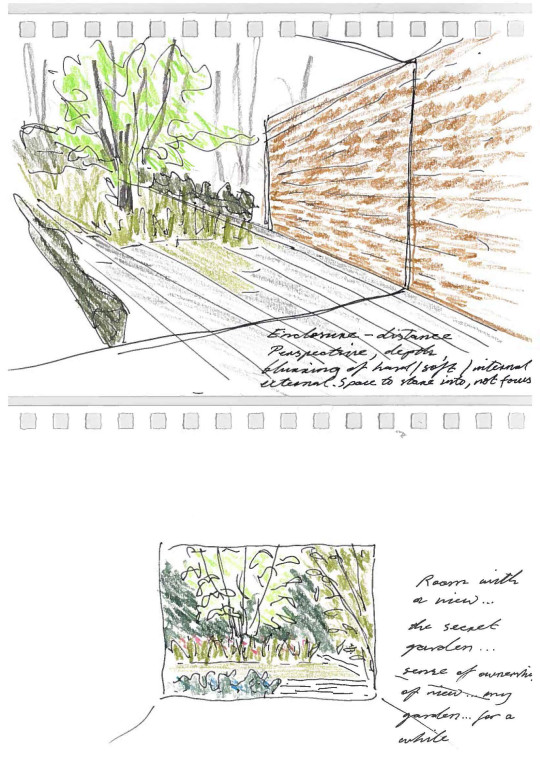 Enclosure - distance
Perspective, depth,
blurring of hard/soft/internal
external. Space to stare into, not focus
Room with
a view...
the secret
garden...
sense of ownership
of view... my
garden... for a
while